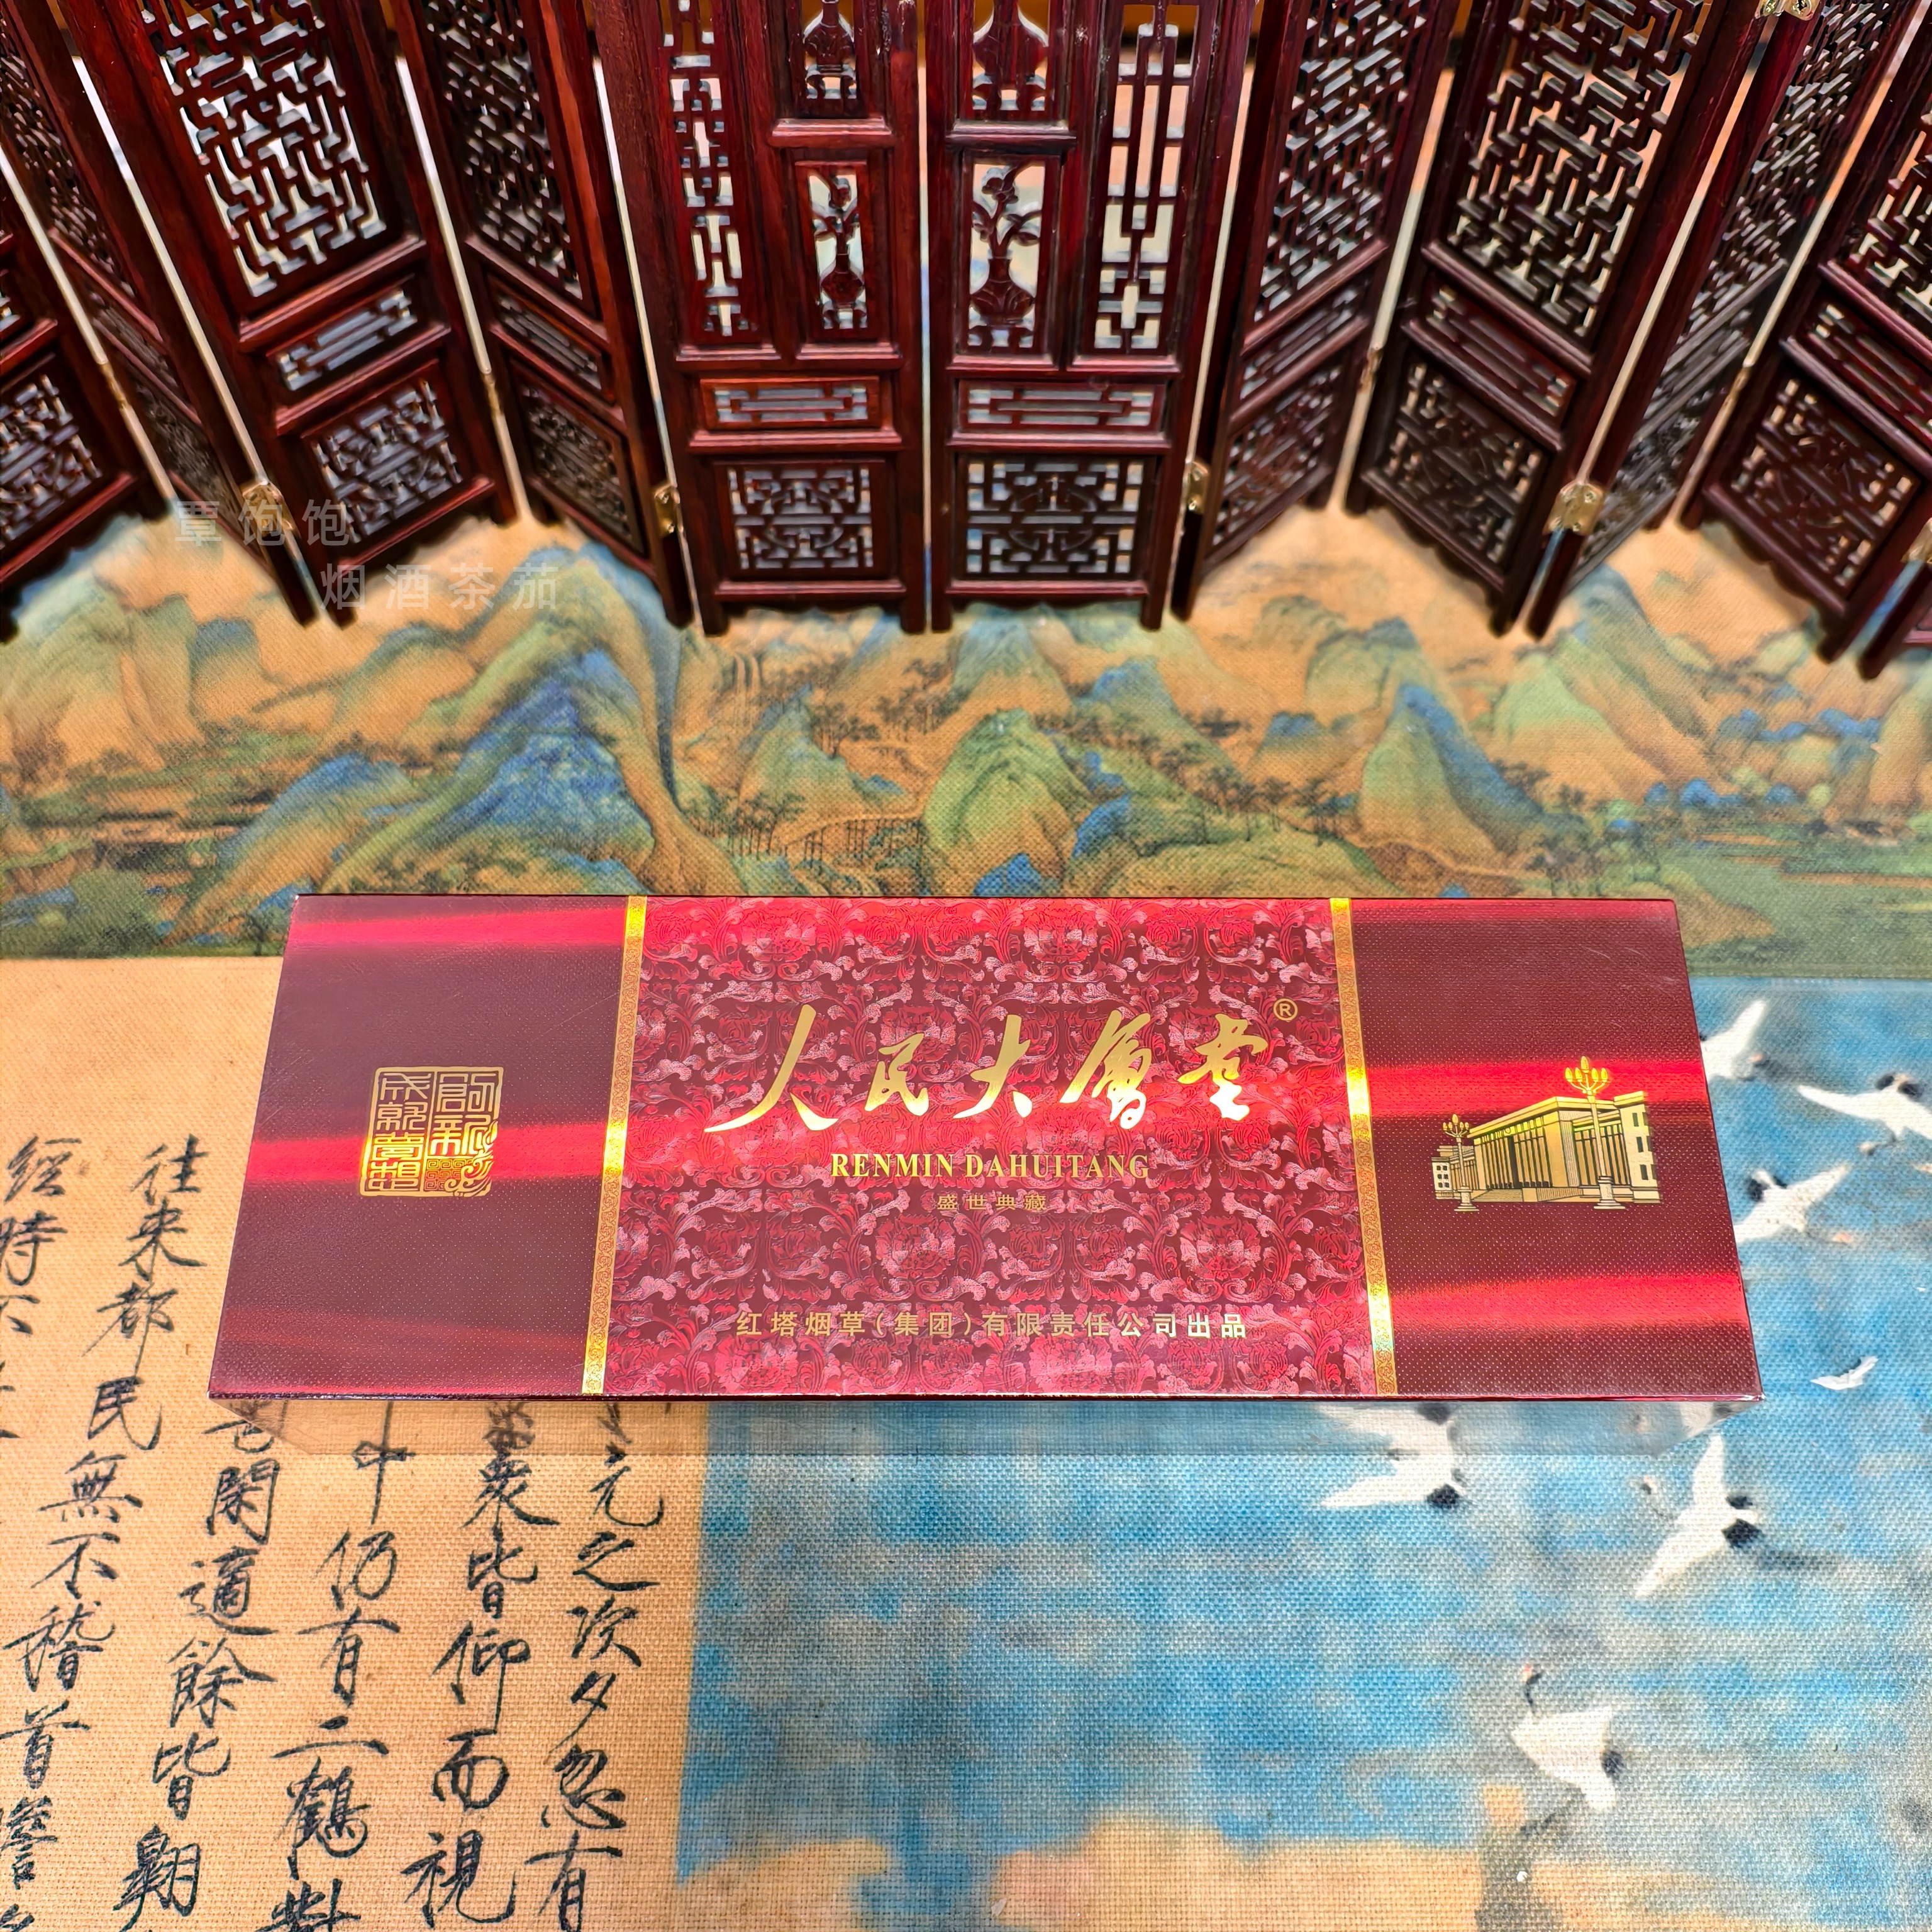 覃饱饱
烟酒茶茄
人民大會堂®
RENMIN DAHUITANG
盛世典藏
红塔烟草(集团)有限责任公司出品
创新
成就梦想
元之次夕忽有
衆皆仰而視
中仍有二鶴對
閑適餘皆翱
往来都民無不稽首瞻
经時不